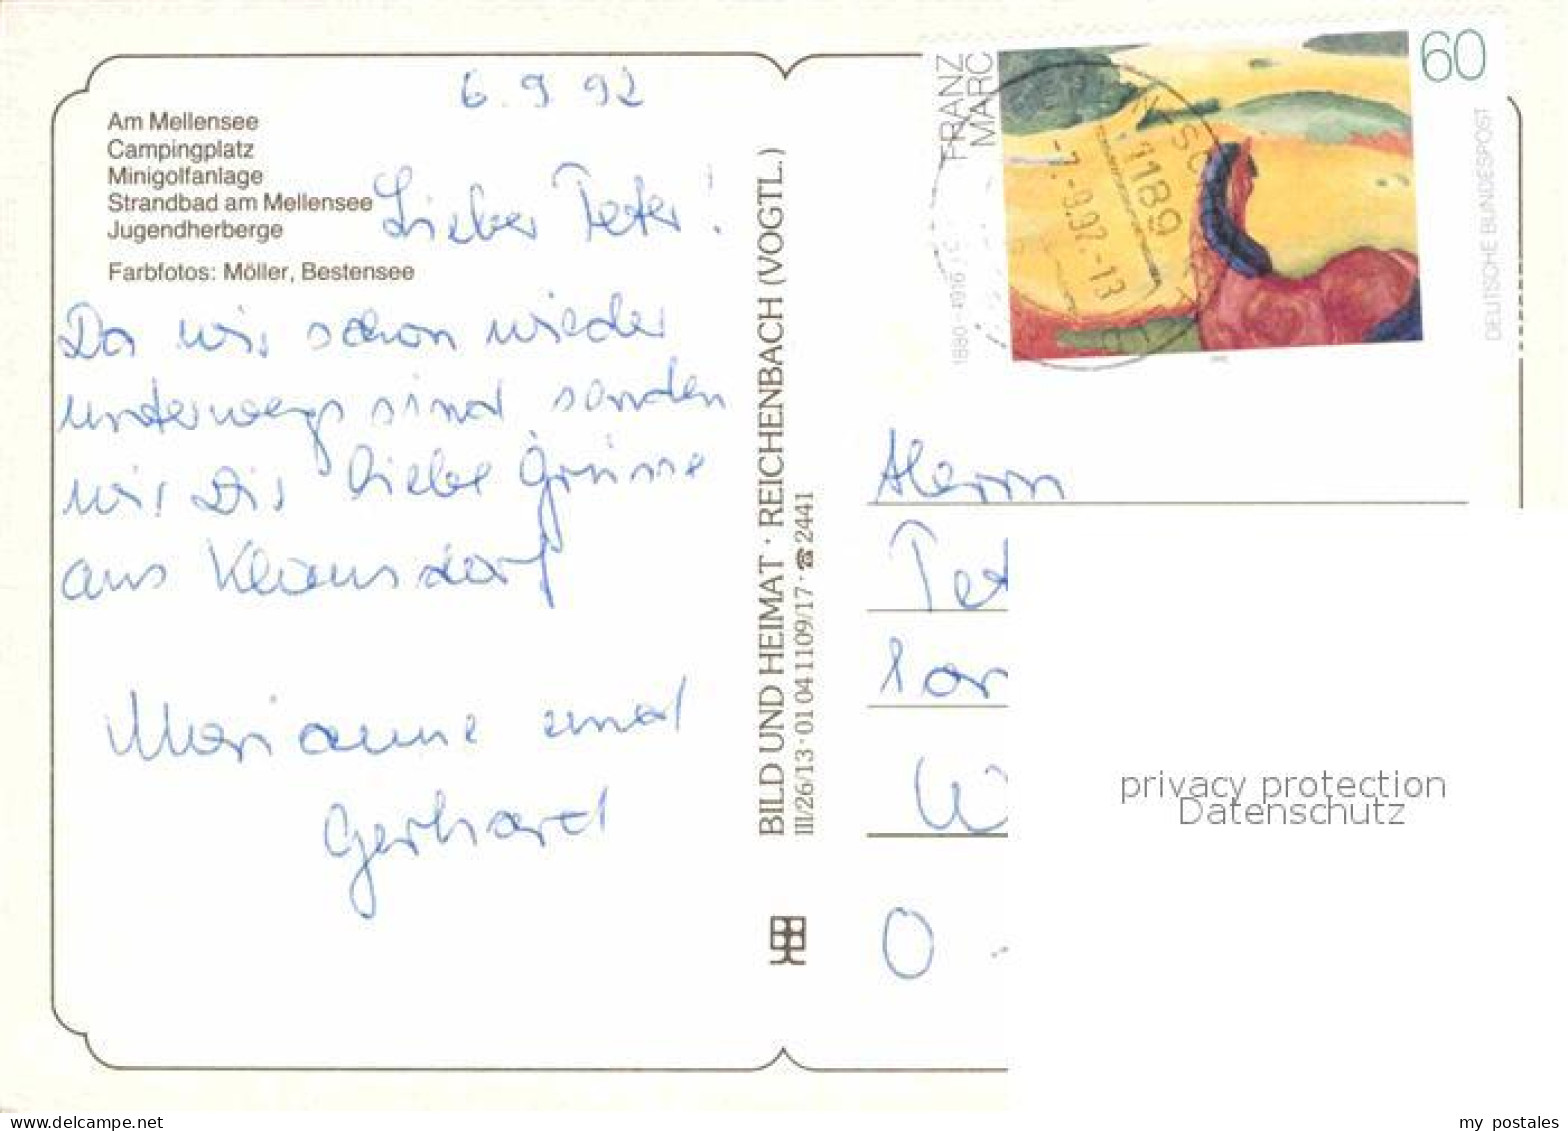 6.9.92
Am Mellensee
Campingplatz
Minigolfanlage
Strandbad am Mellensee
Jugendherberge
Farbfotos: Möller, Bestensee
Lieber Peter!
Da wir schon wieder
unterwegs sind senden
wir Dir liebe Grüsse
aus Klausdorf
Marianne und
Gerhard
BILD UND HEIMAT · REICHENBACH (VOGTL.)
III/26/13 · 01 04 1109/17 · ☎ 2441
FRANZ
MARC
1880–1916
60
DEUTSCHE BUNDESPOST
1189
-7.-9.92.-13
Herrn
Pet
O -
privacy protection
Datenschutz
delcampe.net
my_postales